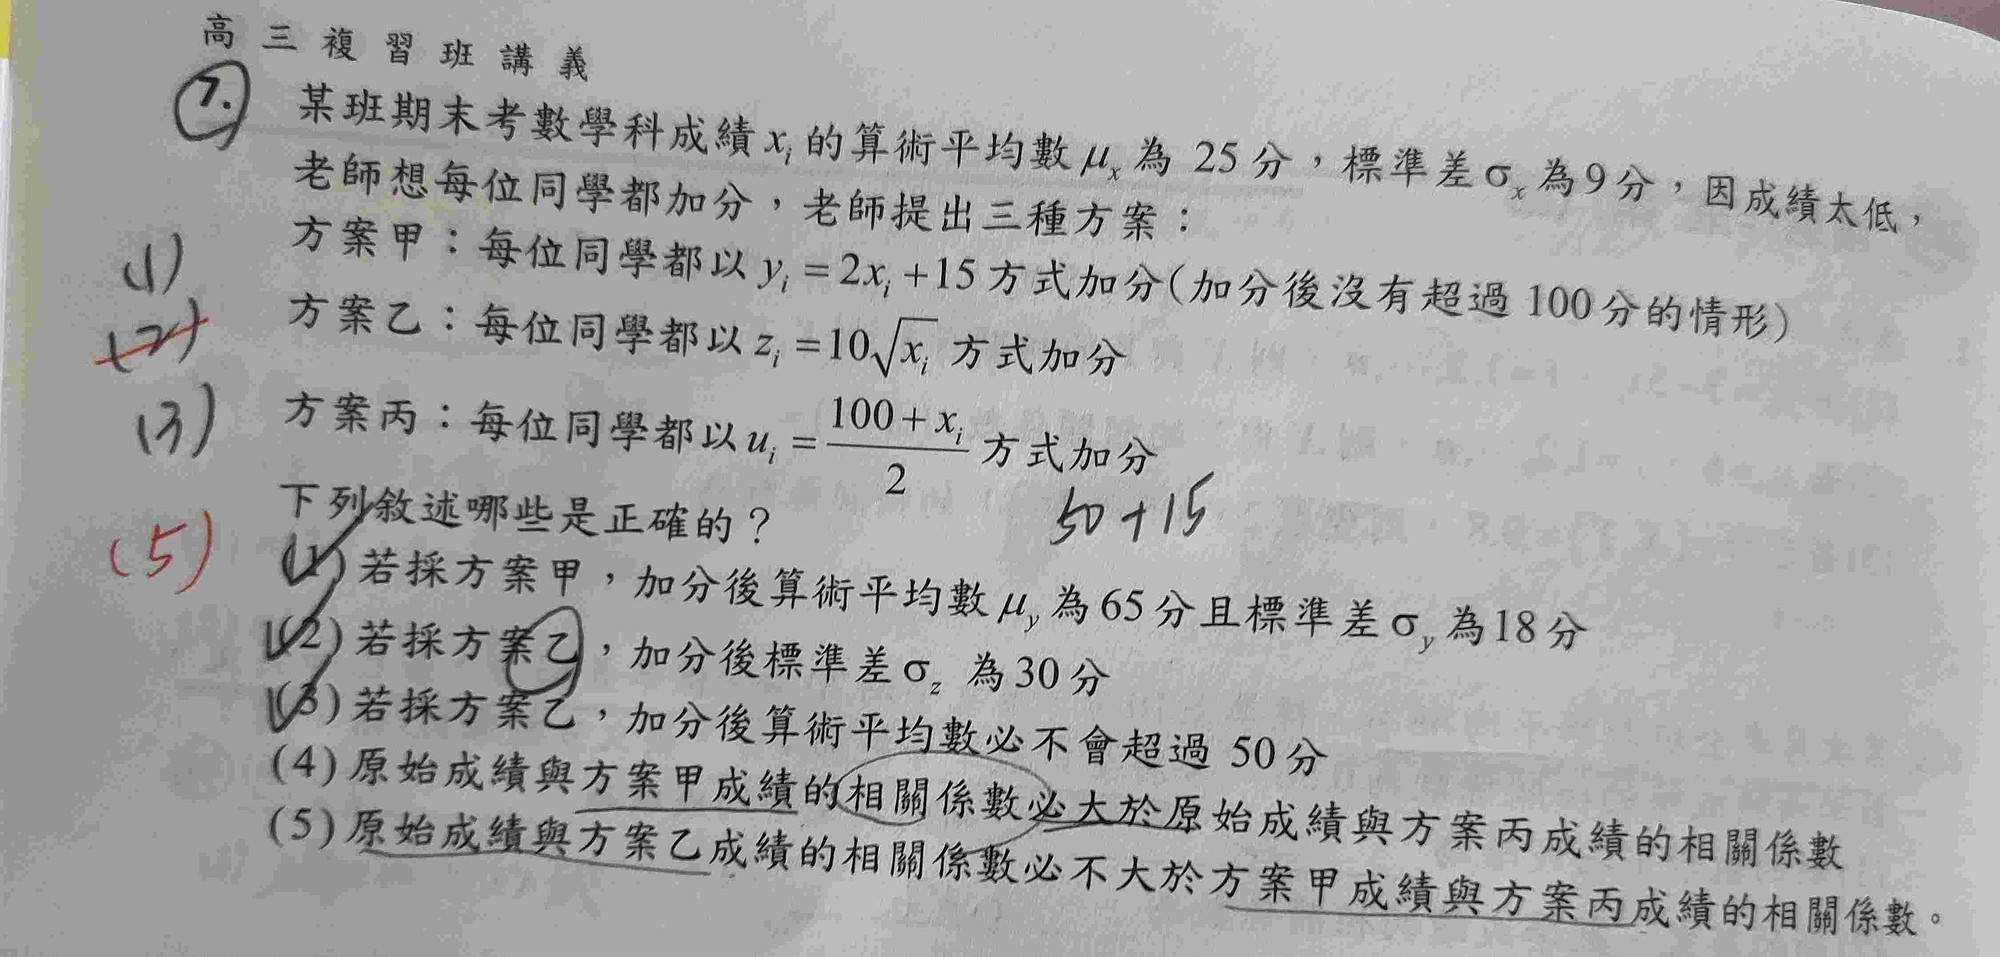 高三複習班講義
7. 某班期末考數學科成績 xᵢ 的算術平均數 μₓ 為 25 分，標準差 σₓ 為 9 分，因成績太低，
老師想每位同學都加分，老師提出三種方案：
(1)
方案甲：每位同學都以 yᵢ = 2xᵢ + 15 方式加分(加分後沒有超過 100 分的情形)
(2)
方案乙：每位同學都以 zᵢ = 10√xᵢ 方式加分
(3)
方案丙：每位同學都以 uᵢ = (100 + xᵢ)/2 方式加分
50+15
下列敘述哪些是正確的？
(5)
(1) 若採方案甲，加分後算術平均數 μ_y 為 65 分且標準差 σ_y 為 18 分
(2) 若採方案乙，加分後標準差 σ_z 為 30 分
(3) 若採方案乙，加分後算術平均數必不會超過 50 分
(4) 原始成績與方案甲成績的相關係數必大於原始成績與方案丙成績的相關係數
(5) 原始成績與方案乙成績的相關係數必不大於方案甲成績與方案丙成績的相關係數。